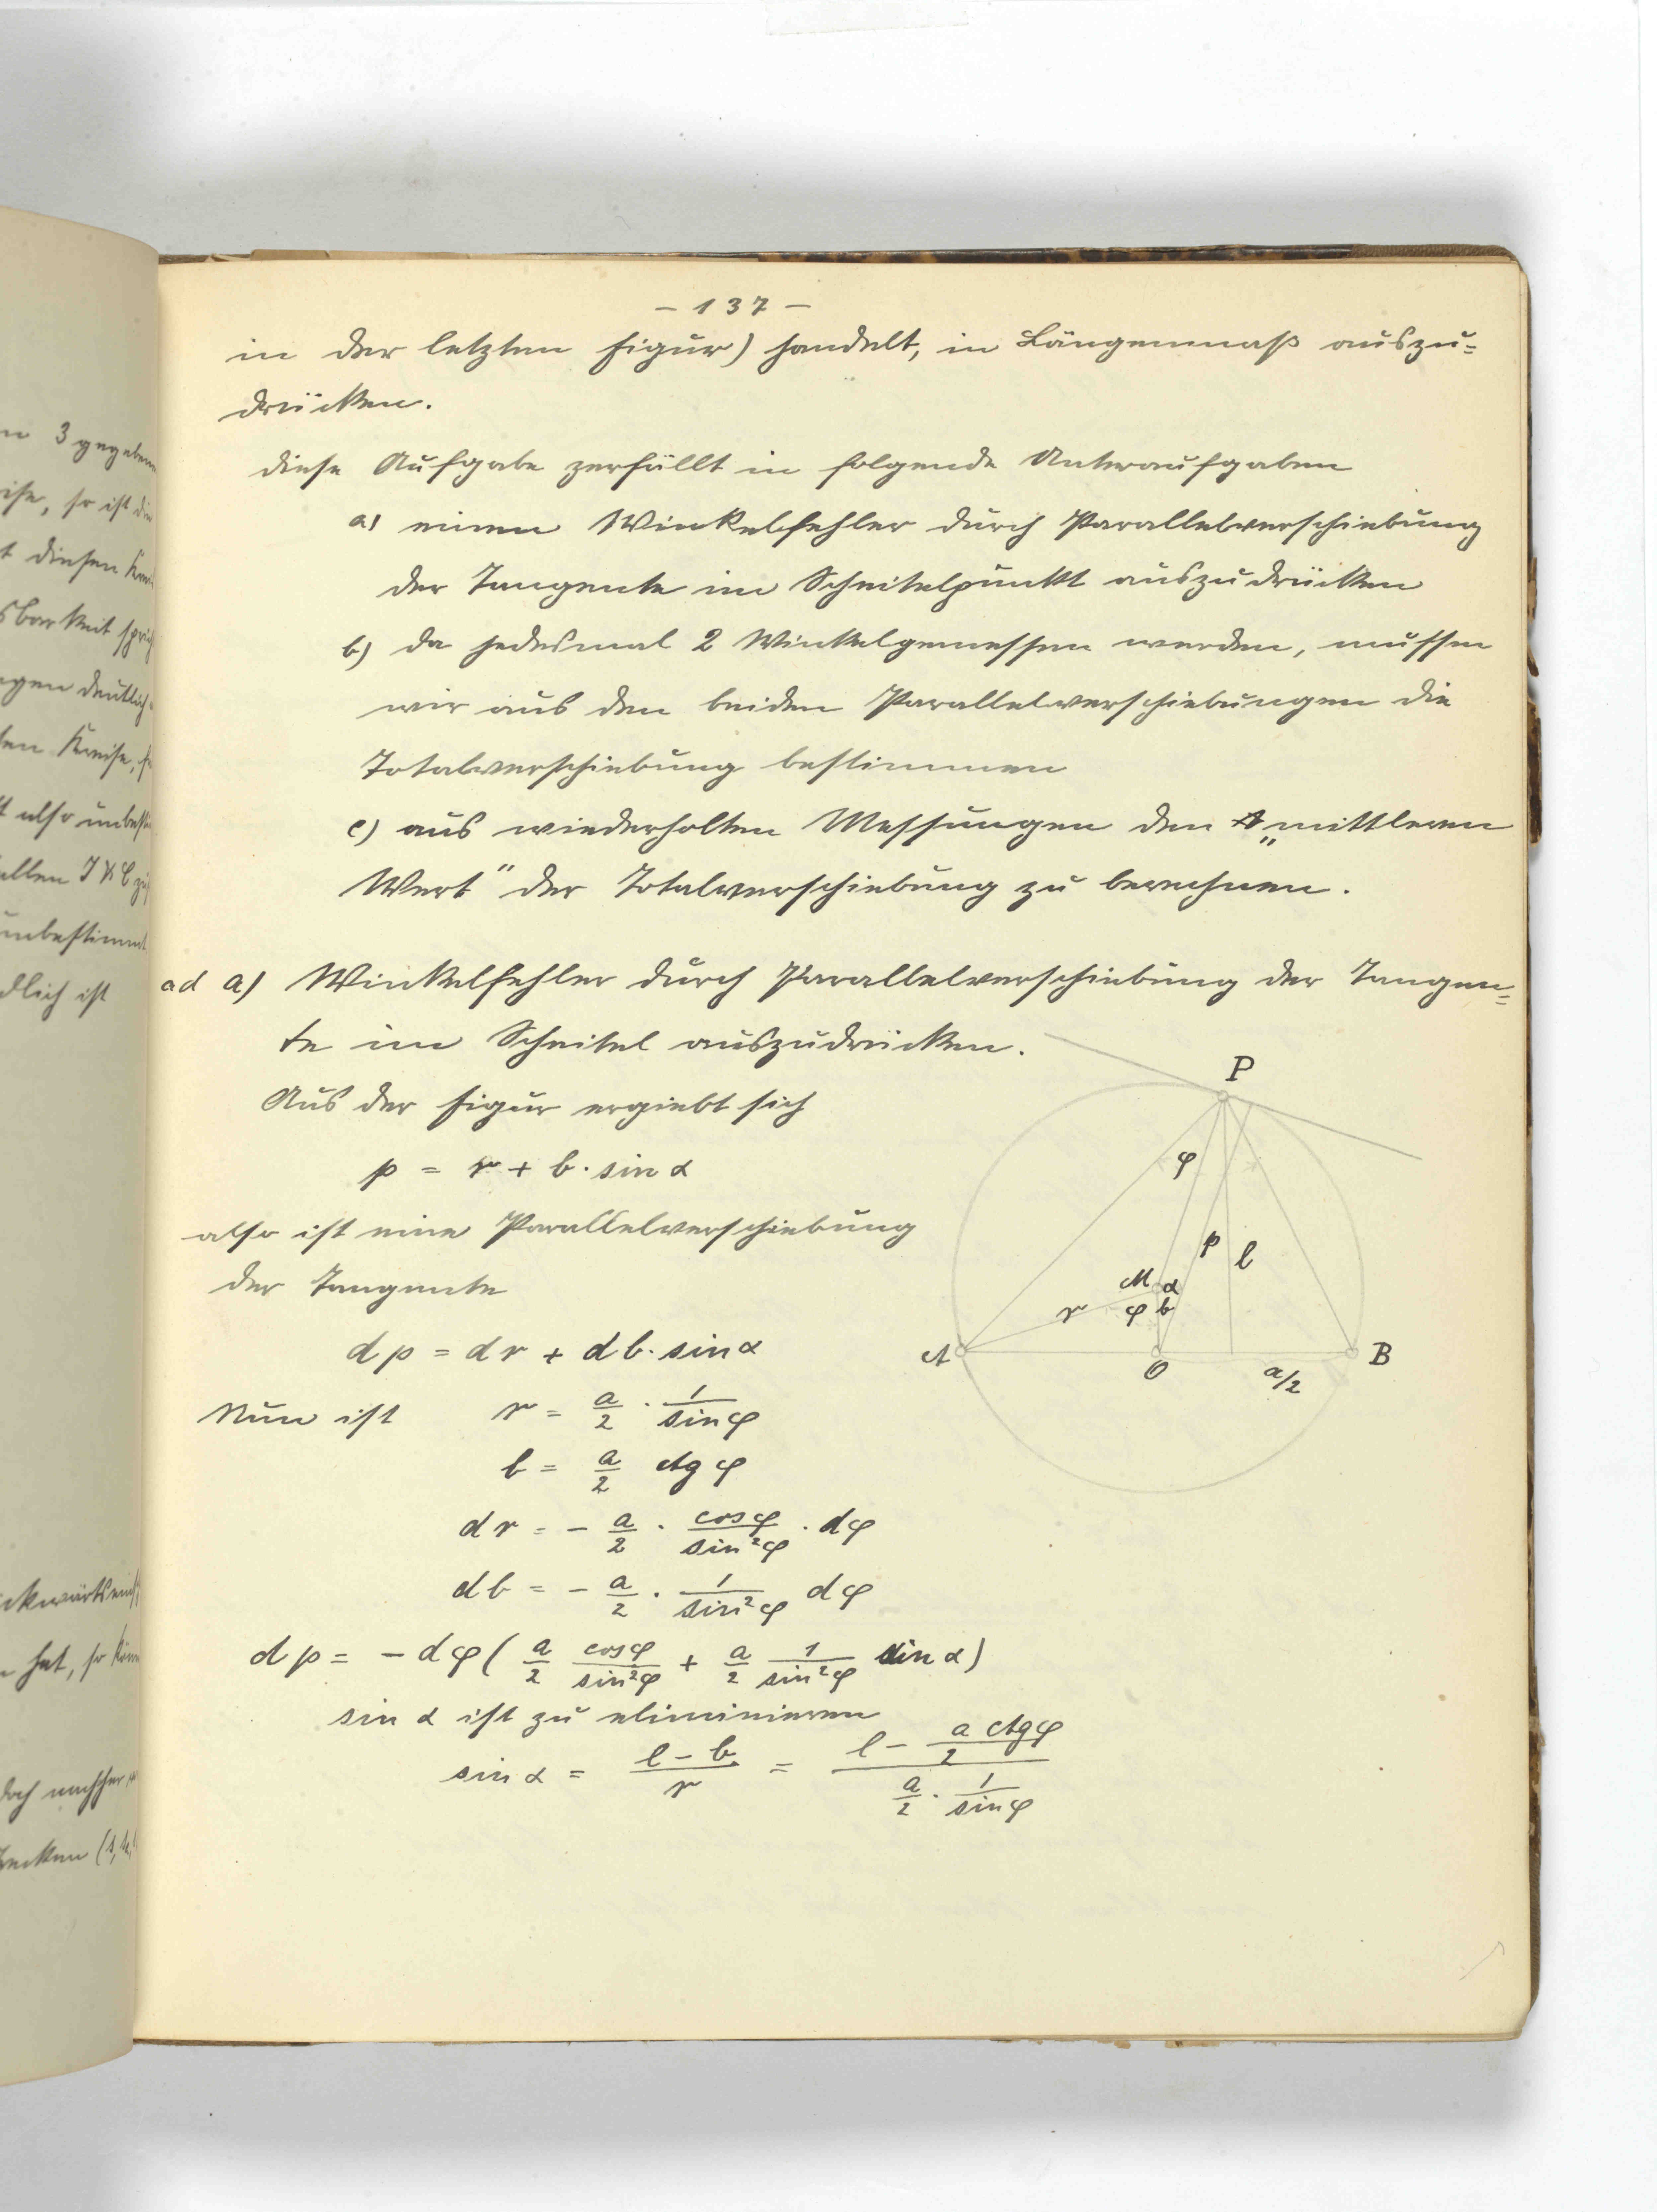 – 137 –
in der letzten Figur) handelt, in Längenmaß auszu=
drücken.
diese Aufgabe zerfällt in folgende Unteraufgaben
a) einen Winkelfehler durch Parallelverschiebung
der Tangente im Scheitelpunkt auszudrücken
b) da jedesmal 2 Winkel gemessen werden, müssen
wir aus den beiden Parallelverschiebungen die
Totalverschiebung bestimmen
c) aus wiederholten Messungen den „mittleren
Wert“ der Totalverschiebung zu berechnen.
ad a) Winkelfehler durch Parallelverschiebung der Tangen=
te im Scheitel auszudrücken.
Aus der Figur ergiebt sich
p = r + b · sin α
also ist eine Parallelverschiebung
der Tangente
dp = dr + db · sin α
Nun ist r = a/2 · 1/sin φ
b = a/2 ctg φ
dr = – a/2 · cos φ/sin²φ · dφ
db = – a/2 · 1/sin²φ dφ
dp = – dφ ( a/2 cos φ/sin²φ + a/2 1/sin²φ sin α )
sin α ist zu eliminieren
sin α = (l – b)/r = (l – a ctg φ/2)/(a/2 · 1/sin φ)
P
φ
p l
M α
r φ b
A O a/2 B
n 3 gegebenen
ise, so ist die
t diesen
sbarkeit
gen deutlich
ten Kreise,
t also
allen
unbestimmt
dlich ist
hat, so
doch nachher